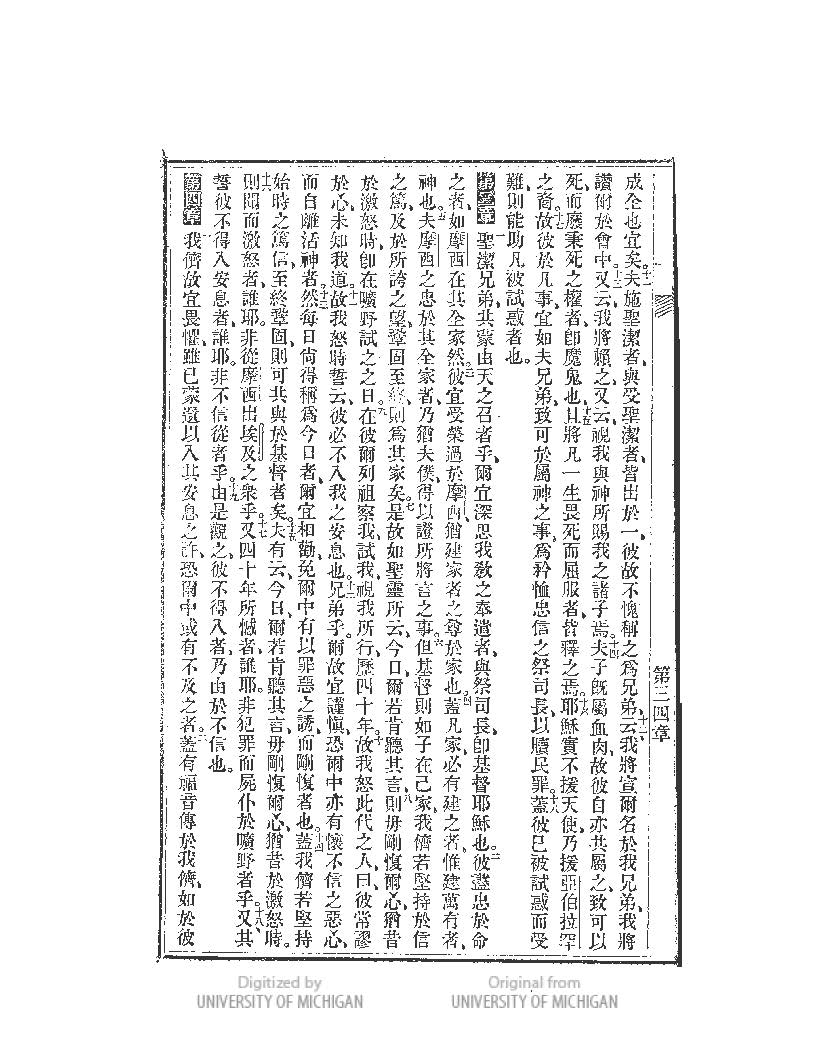 第三四章
成全也宜矣十一夫施聖潔者與受聖潔者皆出於一彼故不愧稱之爲兄弟十二云我將宣爾名於我兄弟我將
讚爾於會中十三又云我將賴之又云視我與神所賜我之諸子焉十四夫子旣屬血肉故彼自亦共屬之致可以
死而廢秉死之權者卽魔鬼也十五且將凡一生畏死而屈服者皆釋之焉十六耶穌實不援天使乃援亞伯拉罕
之裔十七故彼於凡事宜如夫兄弟致可於屬神之事爲矜恤忠信之祭司長以贖民罪十八蓋彼已被試惑而受
難則能助凡被試惑者也。
第三章一聖潔兄弟共蒙由天之召者乎爾宜深思我敎之奉遣者與祭司長卽基督耶穌也二彼盡忠於命
之者如摩西在其全家然三彼宜受榮過於摩西猶建家者之尊於家也四蓋凡家必有建之者惟建萬有者
神也五夫摩西之忠於其全家者乃猶夫僕得以證所將言之事六但基督則如子在己家我儕若堅持於信
之篤及於所誇之望鞏固至終則爲其家矣七是故如聖靈所云今日爾若肯聽其言八則毋剛愎爾心猶昔
於激怒時卽在曠野試之之日九在彼爾列祖察我試我視我所行歷四十年十故我怒此代之人曰彼常謬
於心未知我道十一故我怒時誓云彼必不入我之安息也十二兄弟乎爾故宜謹愼恐爾中亦有懷不信之惡心
而自離活神者十三然每日尙得稱爲今日者爾宜相勸免爾中有以罪惡之誘而剛愎者也十四蓋我儕若堅持
始時之篤信至終鞏固則可共與於基督者矣十五夫有云今日爾若肯聽其言毋剛愎爾心猶昔於激怒時。
十六則聞而激怒者誰耶非從摩西出埃及之衆乎十七又四十年所憾者誰耶非犯罪而屍仆於曠野者乎十八又其
誓彼不得入安息者誰耶非不信從者乎十九由是觀之彼不得入者乃由於不信也。
第四章一我儕故宜畏懼雖已蒙遺以入其安息之許恐爾中或有不及之者二蓋有福音傳於我儕如於彼
Digitized by
UNIVERSITY OF MICHIGAN
Original from
UNIVERSITY OF MICHIGAN